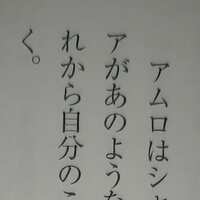 アムロはシャ
アがあのような
れから自分の
く。